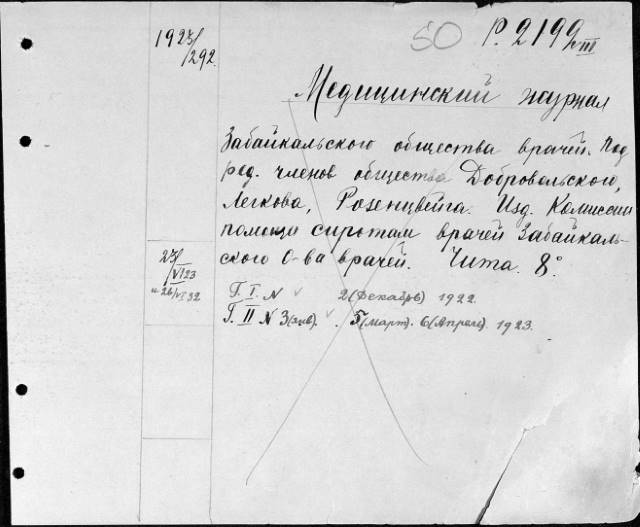 1923/292.
50 P. 2199/VIII
Медицинский журнал
Забайкальского общества врачей. Под
ред. членов общества Добровольского,
Легкова, Розенцвейга. Изд. Комиссии
помощи сиротам врачей Забайкаль-
ского О-ва врачей. Чита. 8°.
23/VI 23
и 26/VI 32
Г. I. N 2 (декабрь) 1922.
Г. II N 3 (янв). 5 (март). 6 (Апрель). 1923.